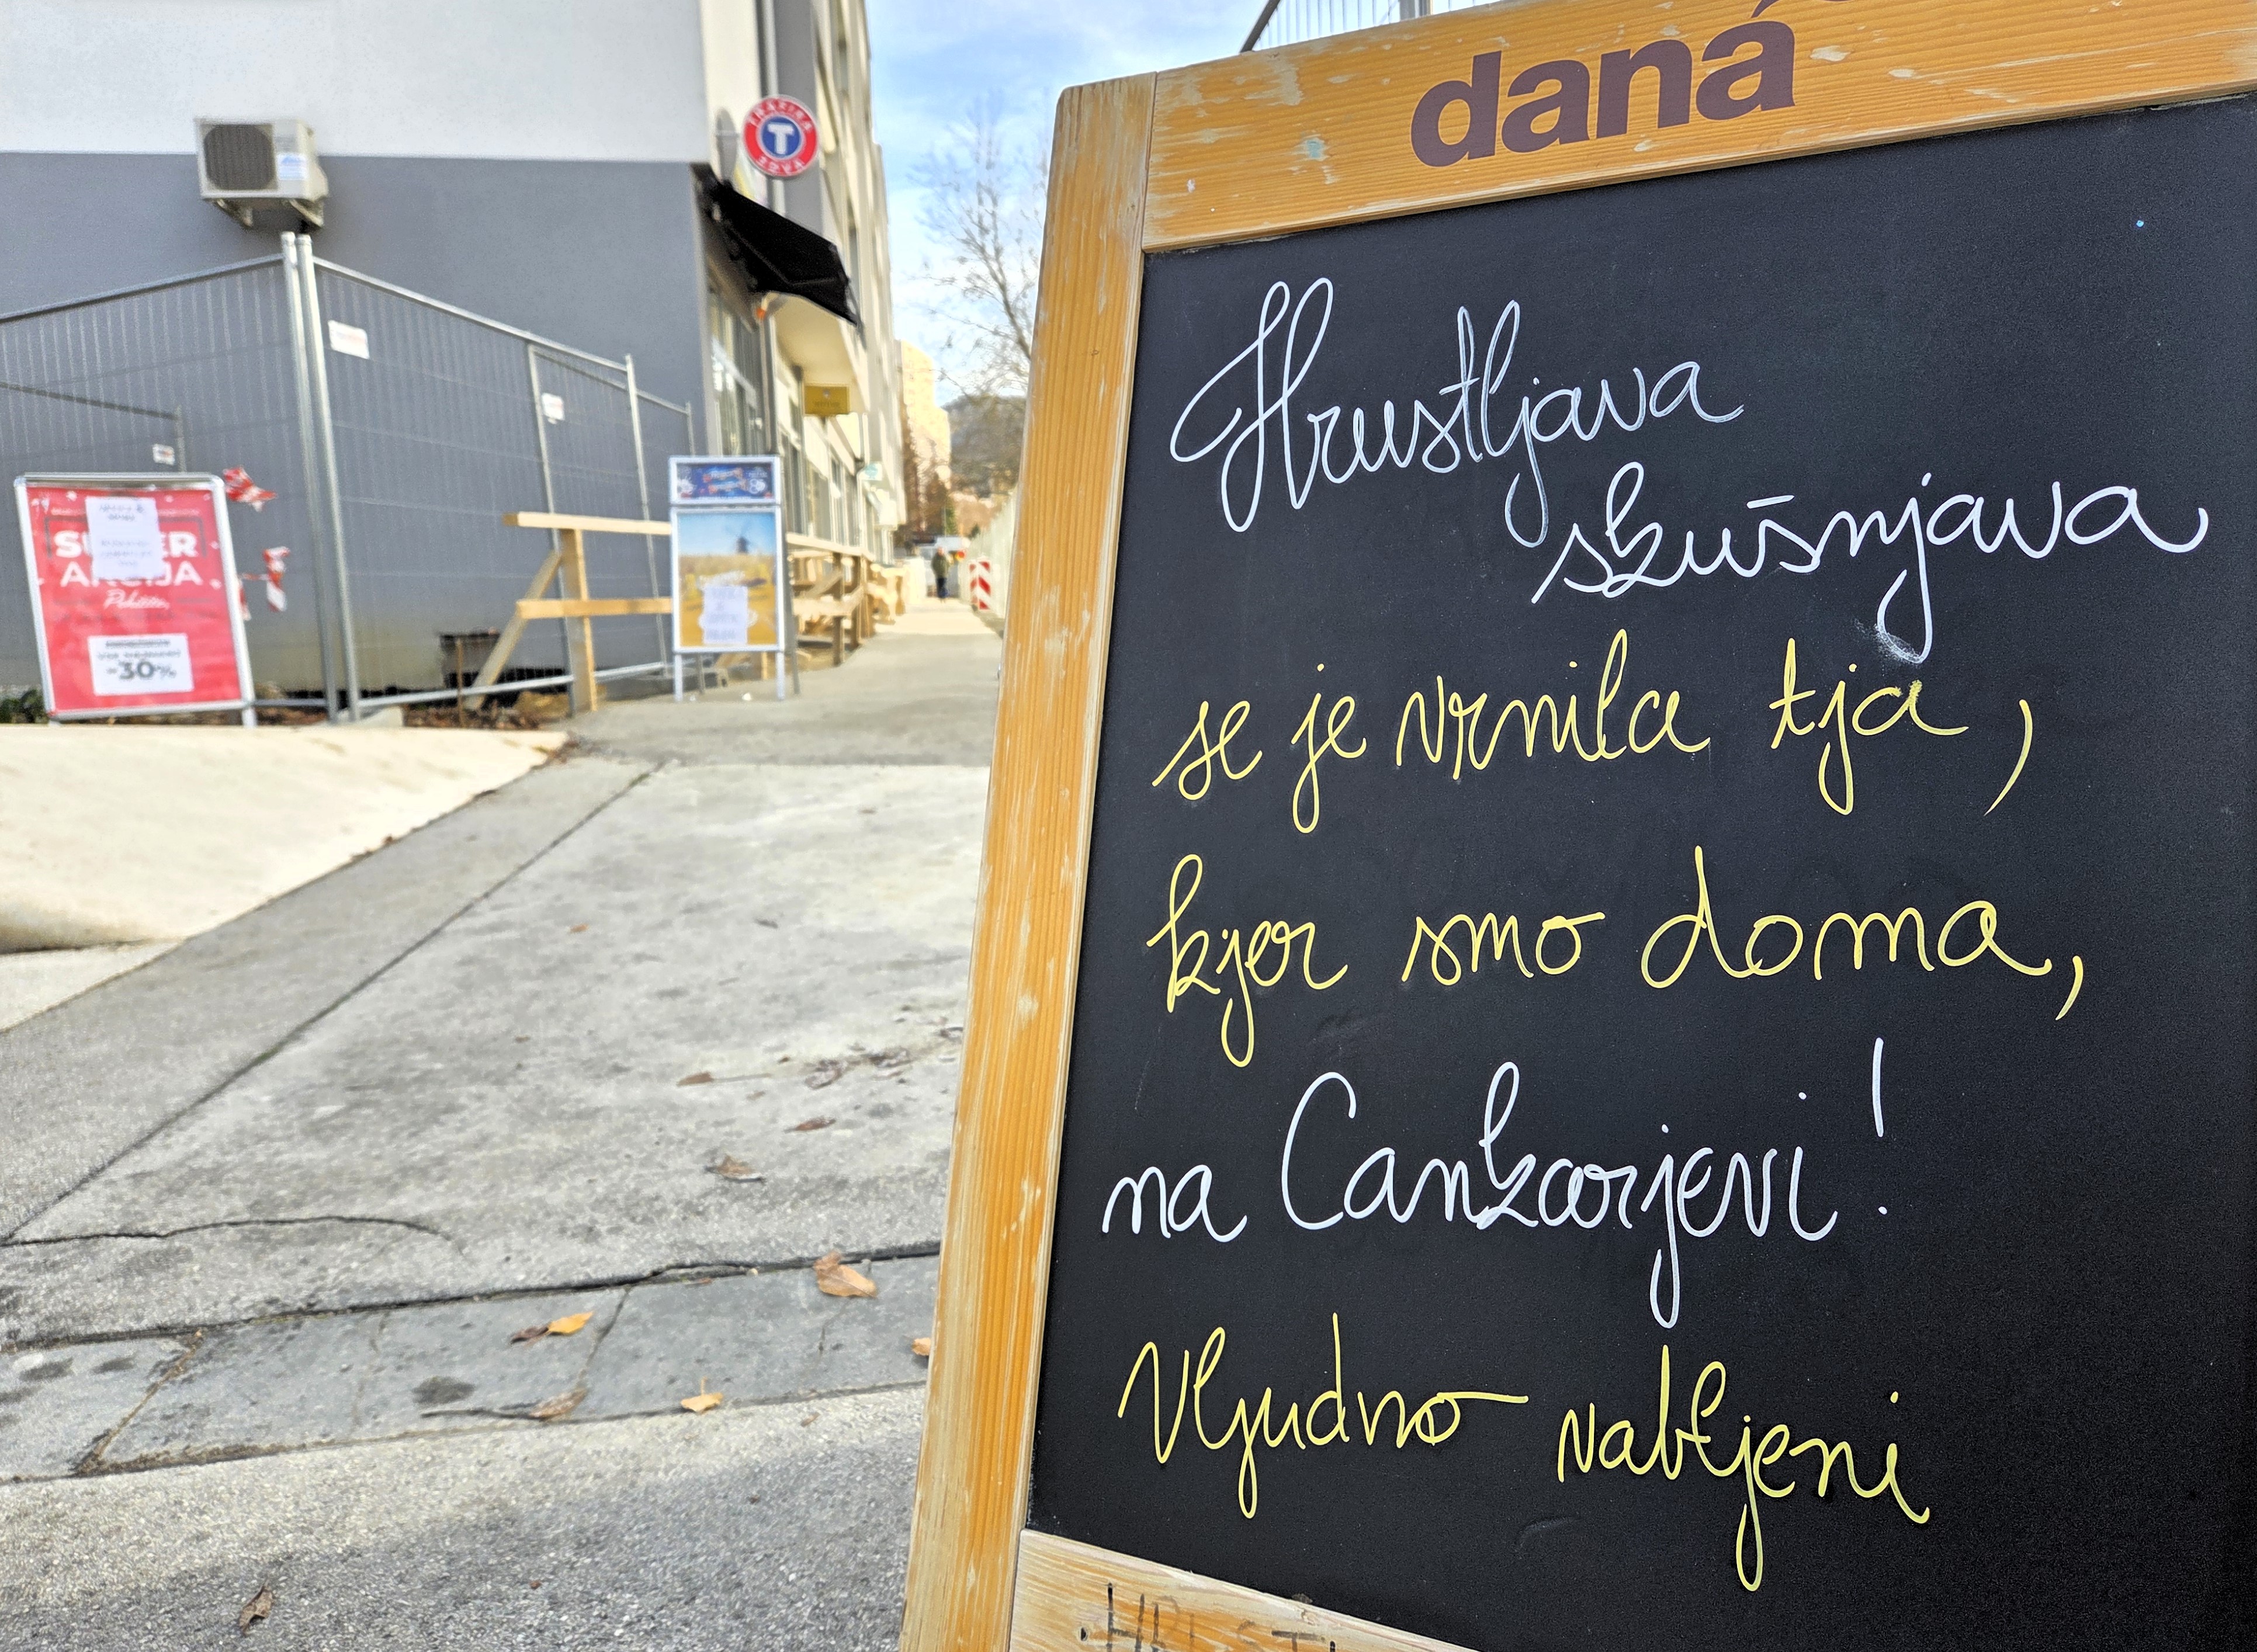 daná
Hrustljava
skušnjava
se je vrnila tja,
kjer smo doma,
na Cankarjevi!
Vljudno vabljeni
TRAFIKA
T
3DVA
SUPER
AKCIJA
-30%